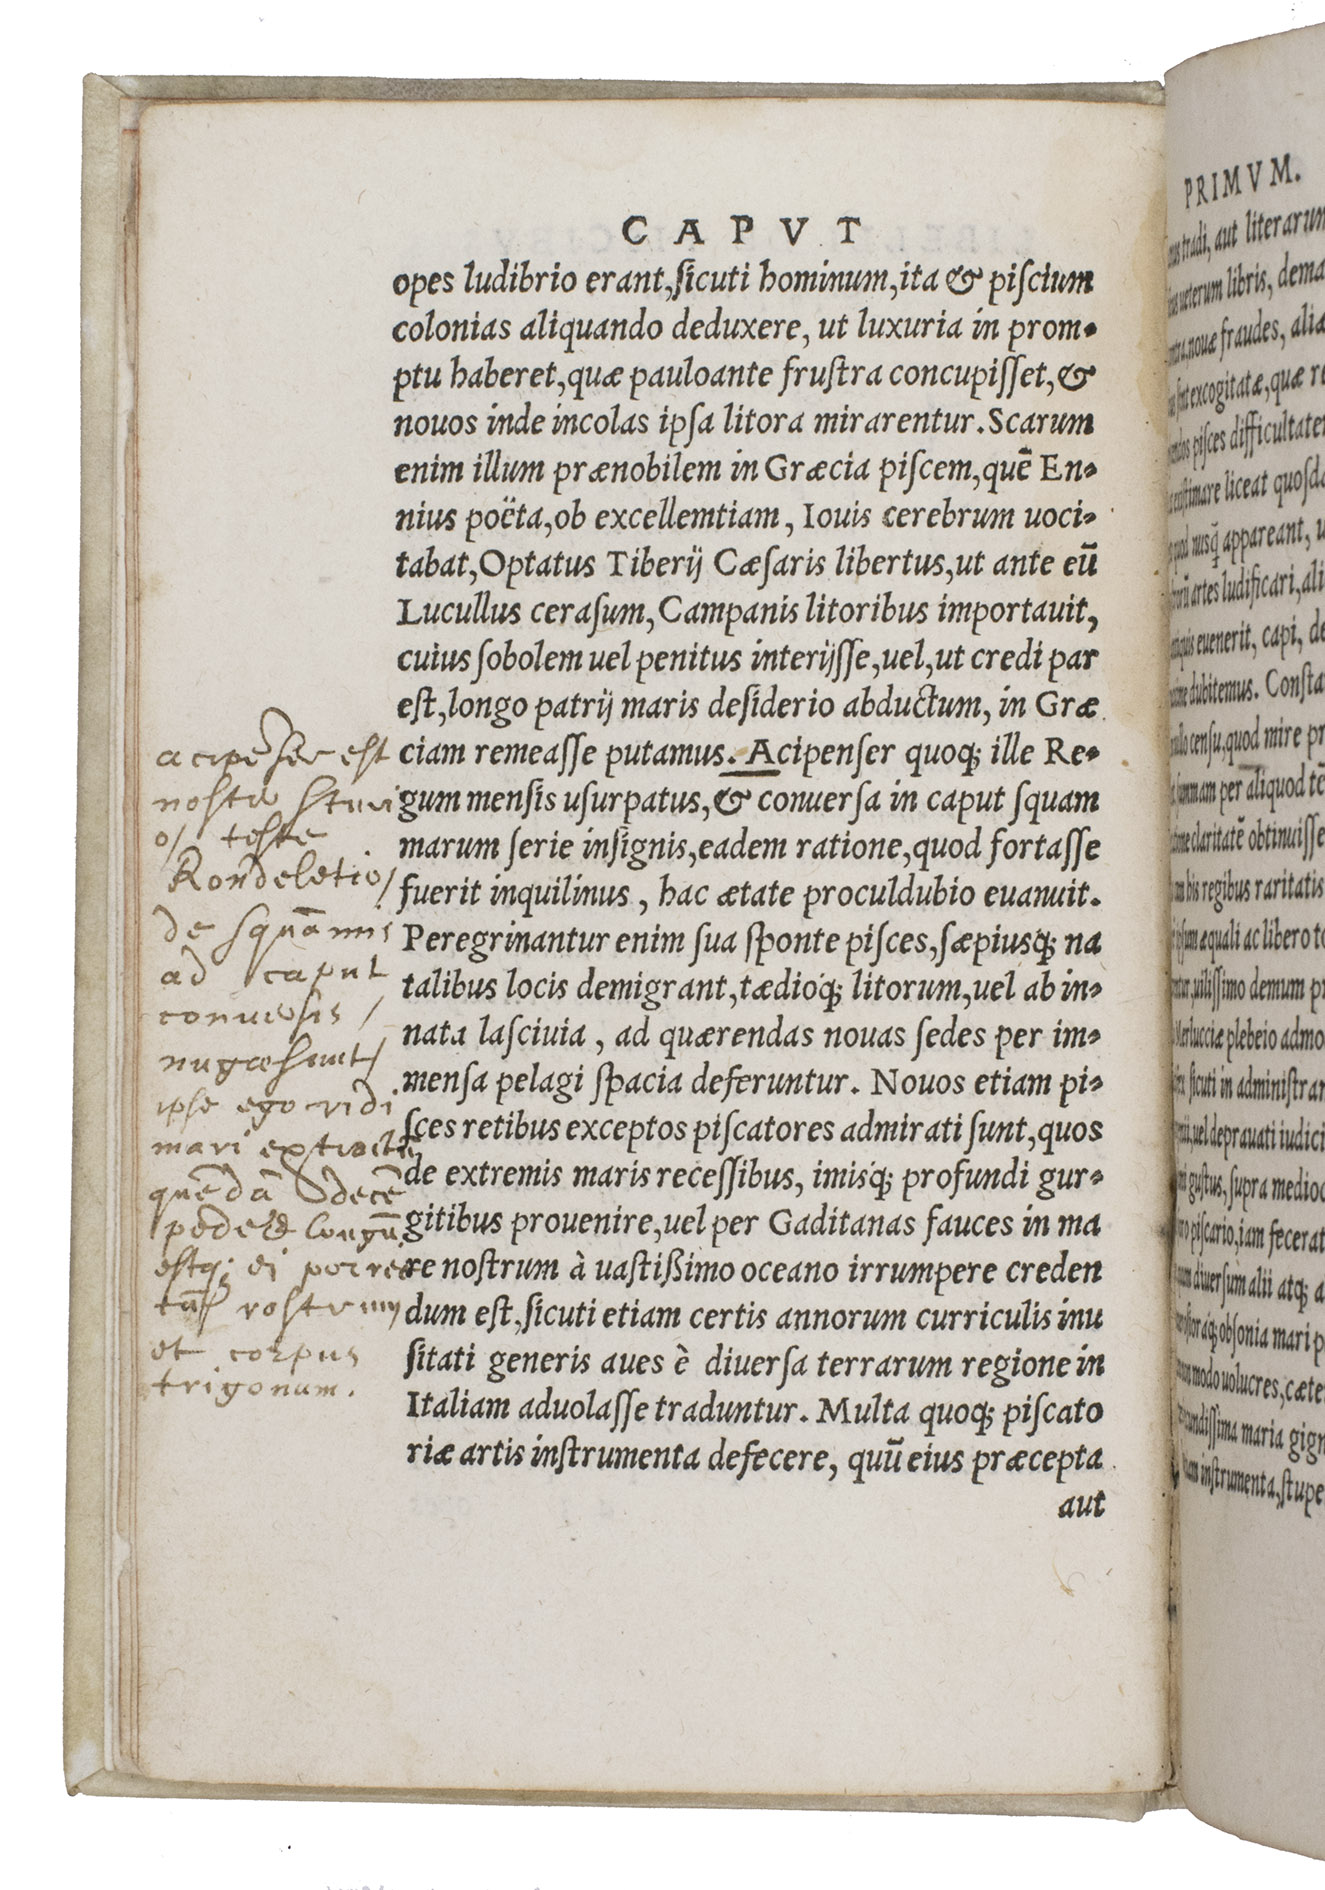 CAPVT
opes ludibrio erant, ſicuti hominum, ita & piſcium
colonias aliquando deduxere, ut luxuria in prom-
ptu haberet, quæ pauloante fruſtra concupiſſet, &
nouos inde incolas ipſa litora mirarentur. Scarum
enim illum prænobilem in Græcia piſcem, quē En-
nius poëta, ob excellemtiam, Iouis cerebrum uoci-
tabat, Optatus Tiberij Cæſaris libertus, ut ante eū
Lucullus ceraſum, Campanis litoribus importauit,
cuius ſobolem uel penitus interijſſe, uel, ut credi par
eſt, longo patrij maris deſiderio abductum, in Græ
ciam remeaſſe putamus. Acipenſer quoq; ille Re-
gum menſis uſurpatus, & conuerſa in caput ſquam
marum ſerie inſignis, eadem ratione, quod fortaſſe
fuerit inquilinus, hac ætate proculdubio euanuit.
Peregrinantur enim ſua ſponte piſces, ſæpiusq; na
talibus locis demigrant, tædioq́; litorum, uel ab in-
nata laſciuia, ad quærendas nouas ſedes per im-
menſa pelagi ſpacia deferuntur. Nouos etiam pi-
ſces retibus exceptos piſcatores admirati ſunt, quos
de extremis maris receſſibus, imisq́; profundi gur-
gitibus prouenire, uel per Gaditanas fauces in ma
re noſtrum à uaſtißimo oceano irrumpere creden
dum eſt, ſicuti etiam certis annorum curriculis inu
ſitati generis aues è diuerſa terrarum regione in
Italiam aduolaſſe traduntur. Multa quoq; piſcato
riæ artis inſtrumenta defecere, quū eius præcepta
aut
acipēſer est
teste
Rondeletio/
de squāmis
ad caput
conuersis /
nugæ sunt/
ipse ego vidi
mari extractū
quēdā decē
pedes longū
estq; ei porrec
tū rostrum
et corpus
trigonum.
PRIMVM.
tradi, aut literarum
ueterum libris, dema
nouæ fraudes, alia
excogitatæ, quæ re
piſces difficultate
liceat quoſda
nuſq̄ appareant, u
artes ludificari, ali
euenerit, capi, de
dubitemus. Conſta
cenſu, quod mire pr
per aliquod tē
claritatē obtinuiſſe
his regibus raritatis
æquali ac libero to
uiliſſimo demum p
Merlucciæ plebeio admo
ſicuti in adminiſtra
uel deprauati iudici
guſtus, ſupra medioc
piſcario, iam fecerat
diuerſum alii atq; a
obſonia mari p
modo uolucres, cæte
maria gign
inſtrumenta, ſtupe